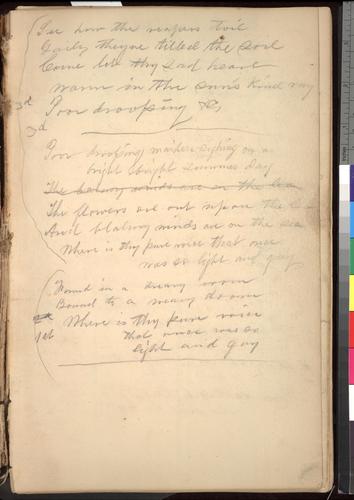 See how the reapers toil
Gaily they've tilled the soil
Come let thy sad heart
warm in the sun's kind ray
3rd Poor drooping &c,
3d
Poor drooping maiden sighing on a
bright bright summer day
The balmy winds are on the lea
The flowers are out upon the
And balmy winds are on the sea
Where is thy pure voice that once
was so light and gay
Found in a dreary room
Bound to a weary doom
Where is thy pure voice
1st that once was so
light and gay